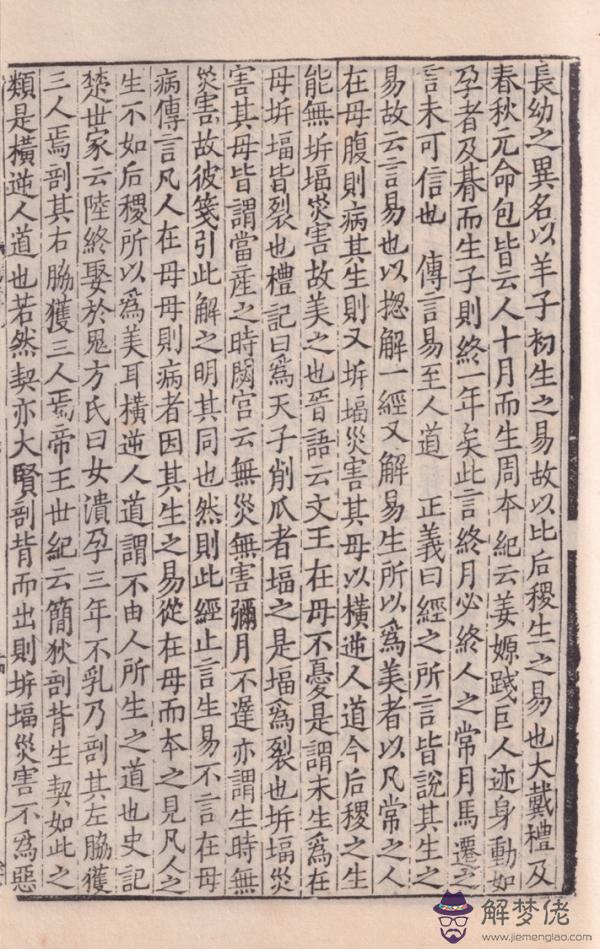 長幼之異名以羊子初生之易故以比后稷生之易也大戴禮及
春秋元命包皆云人十月而生周本紀云姜嫄踐巨人迹身動如
孕者及朞而生子則終一年矣此言終月必終人之常月馬遷之
言未可信也　傳言易至人道　正義曰經之所言皆說其生之
易故云言易也以揔解一經又解易生所以爲美者以凡常之人
在母腹則病其生則又坼堛災害其母以橫逆人道今后稷之生
能無坼堛災害故美之也晉語云文王在母不憂是謂未生爲在
母坼堛皆裂也禮記曰爲天子削瓜者堛之是堛爲裂也坼堛災
害其母皆謂當産之時閟宮云無災無害彌月不遲亦謂生時無
災害故彼箋引此解之明其同也然則此經止言生易不言在母
病傳言凡人在母母則病者因其生之易從在母而本之見凡人之
生不如后稷所以爲美耳橫逆人道謂不由人所生之道也史記
楚世家云陸終娶於鬼方氏曰女潰孕三年不乳乃剖其左脇獲
三人焉剖其右脇獲三人焉帝王世紀云簡狄剖背生契如此之
類是橫逆人道也若然契亦大賢剖背而出則坼堛災害不爲惡
解梦佬
www.jiemenglao.com